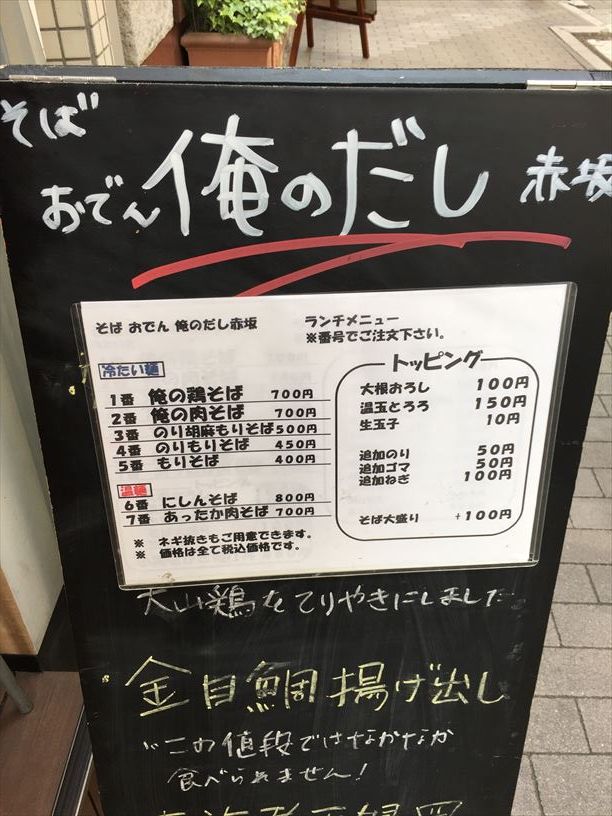 そば
おでん 俺のだし 赤坂
そば おでん 俺のだし赤坂
ランチメニュー
※番号でご注文下さい。
冷たい麺
1番 俺の鶏そば 700円
2番 俺の肉そば 700円
3番 のり胡麻もりそば500円
4番 のりもりそば 450円
5番 もりそば 400円
温麺
6番 にしんそば 800円
7番 あったか肉そば 700円
※ ネギ抜きもご用意できます。
※ 価格は全て税込価格です。
トッピング
大根おろし 100円
温玉とろろ 150円
生玉子 10円
追加のり 50円
追加ゴマ 50円
追加ねぎ 100円
そば大盛り +100円
大山鶏をてりやきにしました
金目鯛揚げ出し
"この値段ではなかなか
食べられません!